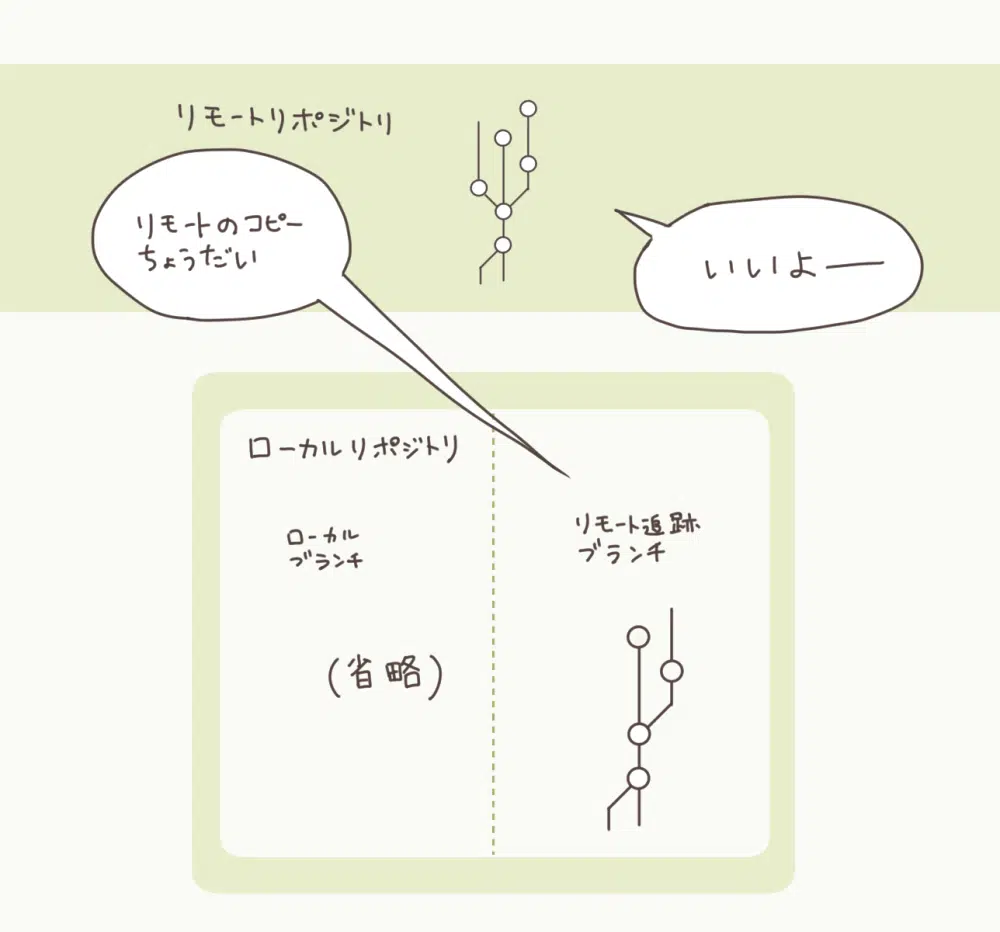 リモートリポジトリ
リモートのコピー
ちょうだい
いいよー
ローカルリポジトリ
ローカル
ブランチ
リモート追跡
ブランチ
(省略)